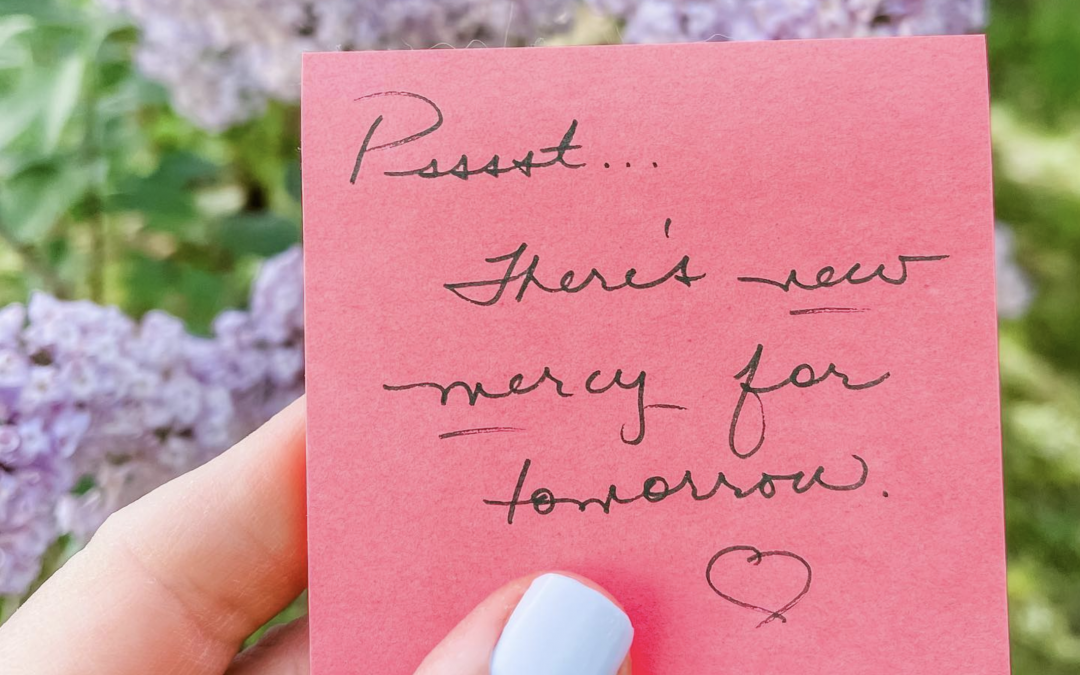 Psssst...
There's new
mercy for
tomorrow.